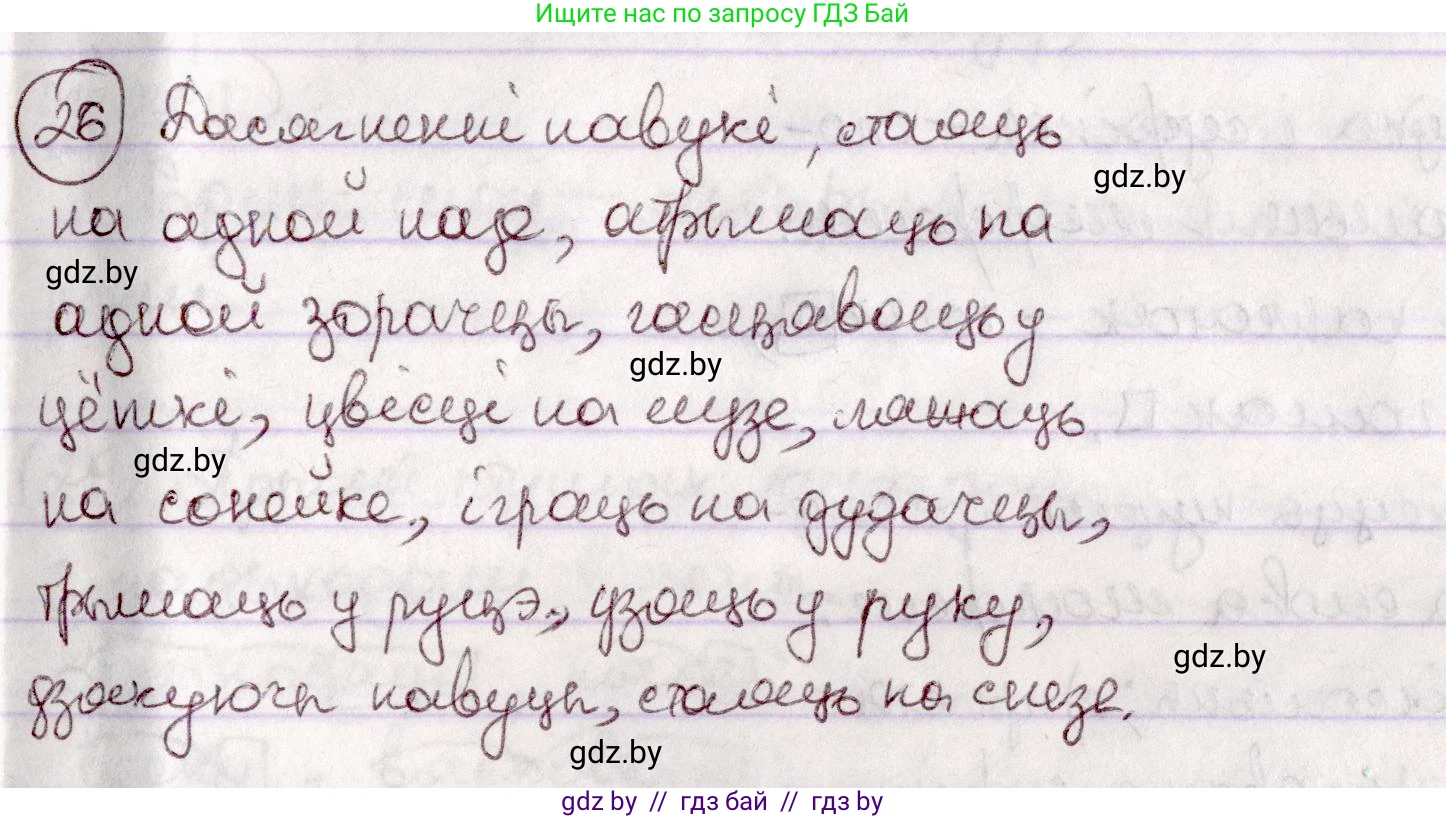 Ищите нас по запросу ГДЗ Бай
26 Дасягненні навукі, стаяць
gdz.by
на адной назе, атрымаць па
gdz.by
адной зорачцы, гасцяваць у
gdz.by
цёткі, цвісці на лузе, ляжаць
gdz.by
на сонейке, іграць на дудачцы,
трымаць у руцэ, узяць у руку,
gdz.by
дзякуючы навуцы, стаяць на снезе.
gdz.by
gdz by // гдз бай // гдз by